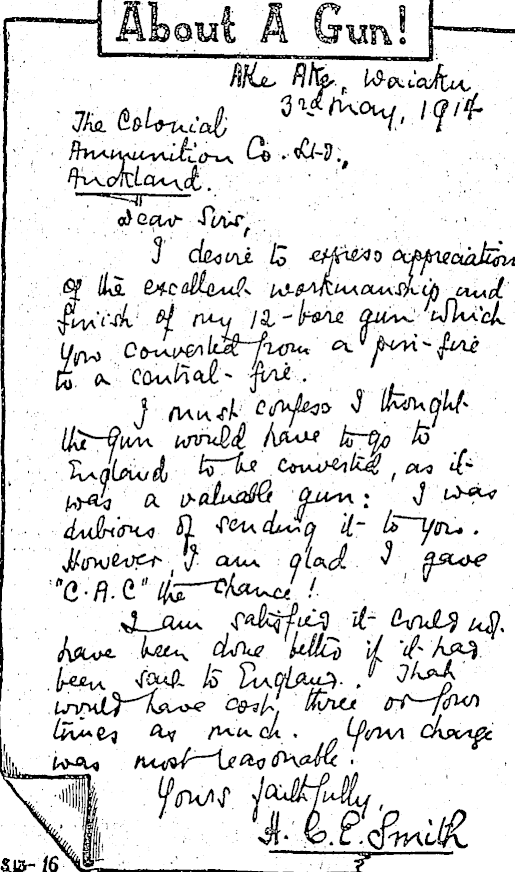 About A Gun!
Ake Ake, Waiaku
3rd May, 1914
The Colonial
Ammunition Co. Ltd.,
Auckland.
Dear Sirs,
I desire to express appreciation
of the excellent workmanship and
finish of my 12-bore gun which
you converted from a pin-fire
to a central-fire.
I must confess I thought
the gun would have to go to
England to be converted, as it
was a valuable gun: I was
dubious of sending it to you.
However, I am glad I gave
"C.A.C" the chance!
I am satisfied it could not
have been done better if it had
been sent to England. That
would have cost three or four
times as much. Your charge
was most reasonable.
Yours faithfully,
H. C. E. Smith
S13-16